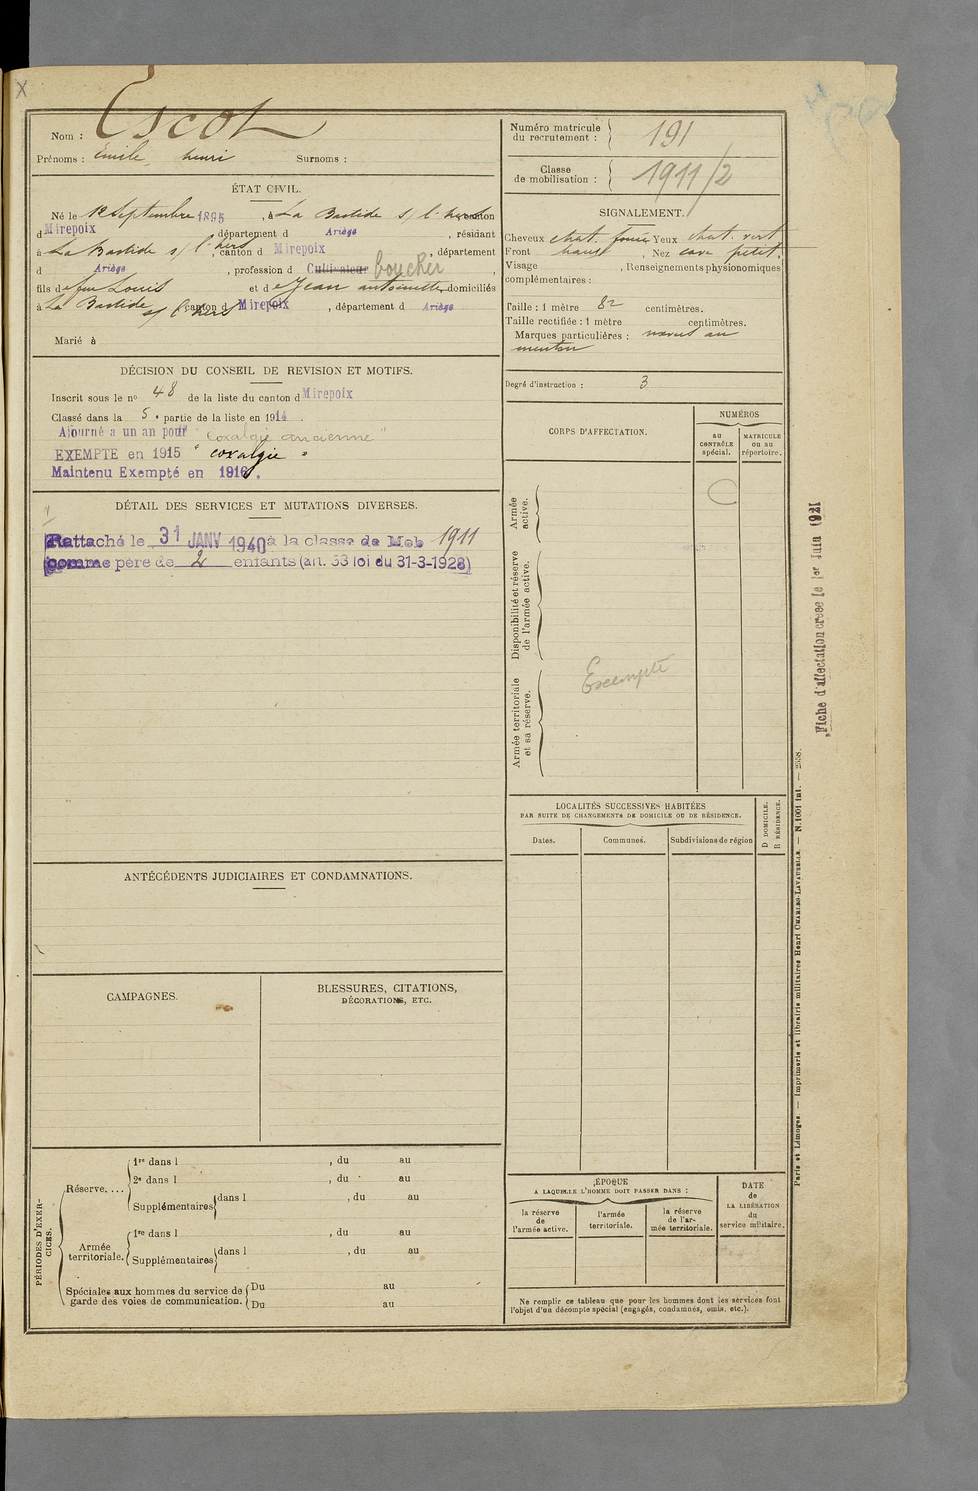 X
Nom : Escot
Prénoms : Émile, henri Surnoms :
ÉTAT CIVIL.
Né le 12 Septembre 1895, à La Bastide s/ l'hers canton
d Mirepoix, département d Ariège, résidant
à La Bastide s/ l'hers, canton d Mirepoix, département
d Ariège, profession d Cultivateur boucher,
fils de feu Louis et de Jean antoinette domiciliés
à La Bastide s/ l'hers canton d Mirepoix, département d Ariège
Marié à
DÉCISION DU CONSEIL DE REVISION ET MOTIFS.
Inscrit sous le n° 48 de la liste du canton d Mirepoix
Classé dans la 5e partie de la liste en 1914.
Ajourné a un an pour "coxalgie ancienne"
EXEMPTE en 1915 "coxalgie"
Maintenu Exempté en 1916.
DÉTAIL DES SERVICES ET MUTATIONS DIVERSES.
Rattaché le 31 JANV 1940 à la classe de Mob 1911
comme père de 2 enfants (art. 33 loi du 31-3-1928)
ANTÉCÉDENTS JUDICIAIRES ET CONDAMNATIONS.
CAMPAGNES.
BLESSURES, CITATIONS,
DÉCORATIONS, ETC.
PÉRIODES D'EXER-
CICES.
Réserve. ...
1re dans l , du au
2e dans l , du au
Supplémentaires dans l , du au
Armée
territoriale.
1re dans l , du au
Supplémentaires dans l , du au
Spéciales aux hommes du service de
garde des voies de communication.
Du au
Du au
Numéro matricule
du recrutement : 191
Classe
de mobilisation : 1911/2
SIGNALEMENT.
Cheveux chat. foncé Yeux chat. vert
Front haut, Nez cave petit.
Visage , Renseignements physionomiques
complémentaires :
Taille : 1 mètre 82 centimètres.
Taille rectifiée : 1 mètre centimètres.
Marques particulières : naevus au
menton
Degré d'instruction : 3
CORPS D'AFFECTATION.
NUMÉROS
AU
CONTRÔLE
spécial.
MATRICULE
OU AU
répertoire.
Armée
active.
Disponibilité et réserve
de l'armée active.
Armée territoriale
et sa réserve.
Exempté
LOCALITÉS SUCCESSIVES HABITÉES
PAR SUITE DE CHANGEMENTS DE DOMICILE OU DE RÉSIDENCE.
Dates.
Communes.
Subdivisions de région
D DOMICILE.
R RÉSIDENCE.
ÉPOQUE
A LAQUELLE L'HOMME DOIT PASSER DANS :
la réserve
de
l'armée active.
l'armée
territoriale.
la réserve
de l'ar-
mée territoriale.
DATE
de
LA LIBÉRATION
du
service militaire.
Ne remplir ce tableau que pour les hommes dont les services font
l'objet d'un décompte spécial (engagés, condamnés, omis, etc.).
Fiche d'affectation créée le 1er Juin 1921
Paris et Limoges. — Imprimerie et librairie militaires Henri CHARLES-LAVAUZELLE. — N. 1001 int. — 2558.